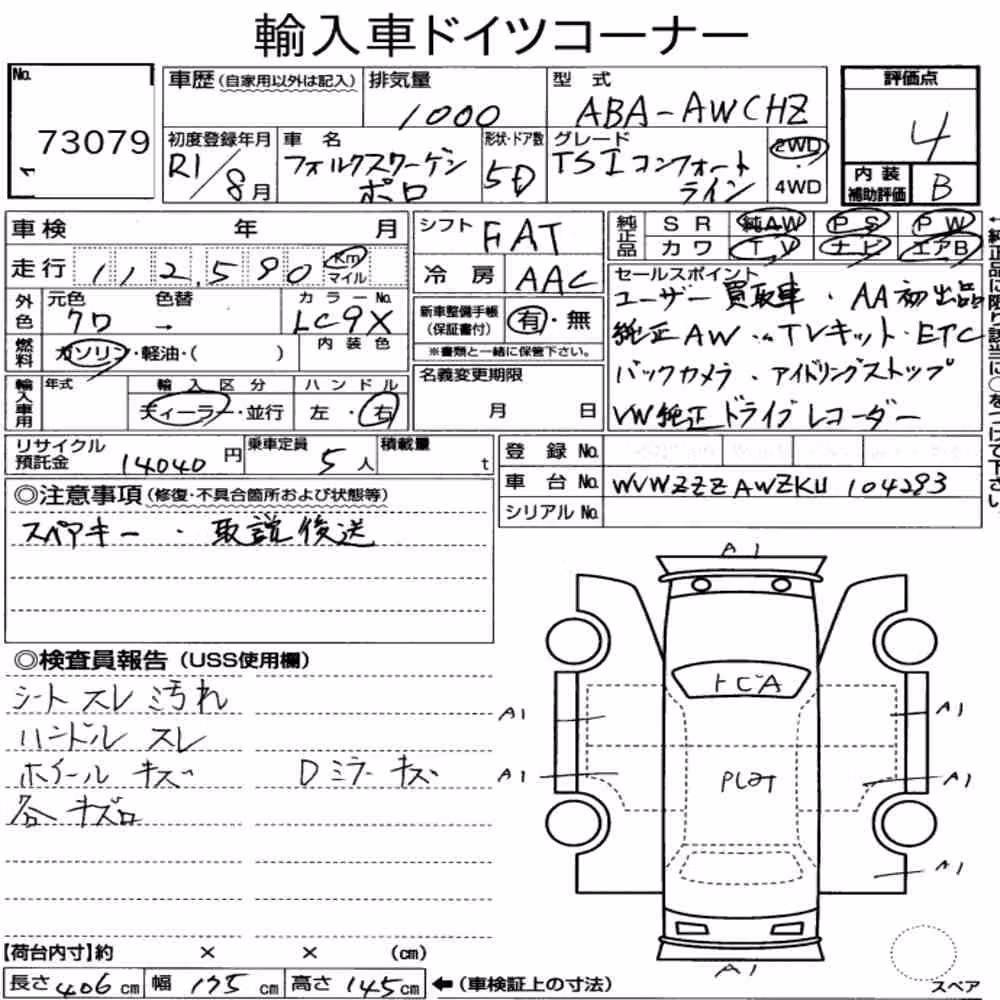 輸入車ドイツコーナー
No. 73079
1
車歴(自家用以外は記入) 排気量 1000 型式 ABA-AWCHZ
評価点 4
初度登録年月 R1/8月 車名 フォルクスワーゲン ポロ 形状・ドア数 5D グレード TSI コンフォートライン 2WD・4WD
内装補助評価 B
車検 年 月
シフト FAT
純正品 SR 純AW PS PW
カワ TV ナビ エアB
走行 112,590 Km マイル
冷房 AAC
外色 元色 クロ 色替 → カラーNo. LC9X
内装色
燃料 ガソリン・軽油・( )
新車整備手帳(保証書付) 有・無
※書類と一緒に保管下さい。
セールスポイント
ユーザー買取車・AA初出品
純正AW・TVキット・ETC
バックカメラ・アイドリングストップ
VW純正ドライブレコーダー
輸入車用 年式 輸入区分 ディーラー・並行 ハンドル 左・右
名義変更期限 月 日
リサイクル預託金 14040円 乗車定員 5人 積載量 t
登録No.
車台No. WVWZZZAWZKU104293
シリアルNo.
◎注意事項(修復・不具合箇所および状態等)
スペアキー・取説後送
◎検査員報告(USS使用欄)
シート スレ 汚れ
ハンドル スレ
ホイール キズ Dミラーキズ
各キズロ
A1
トビA
A1 A1
A1 A1
PLガ
A1
A1
【荷台内寸】約 × × (cm)
長さ 406cm 幅 175cm 高さ 145cm ←(車検証上の寸法)
スペア